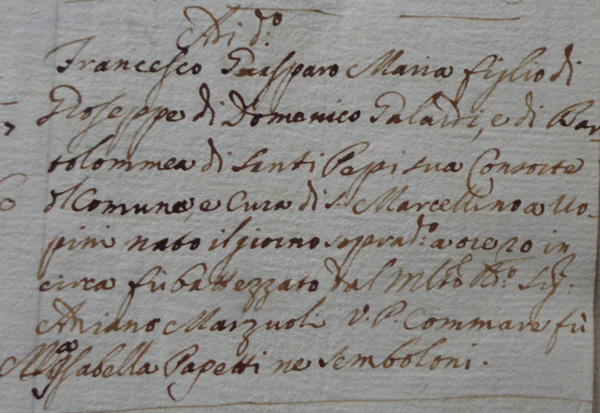 Adi d.º
Francesco Gasparo Maria figlio di
Gioseppe di Domenico Galardi, e di Bar-
tolommea di Santi Pepi sua Consorte
Comune, e Cura di S. Marcellino a Uo-
pini nato il giorno soprad.º a ore 20 in
circa fù battezzato dal Mlto Rd.º Sig.
Ariano Marzuoli V. P. Commare fù
M.ª Isabella Papetti ne Semboloni.